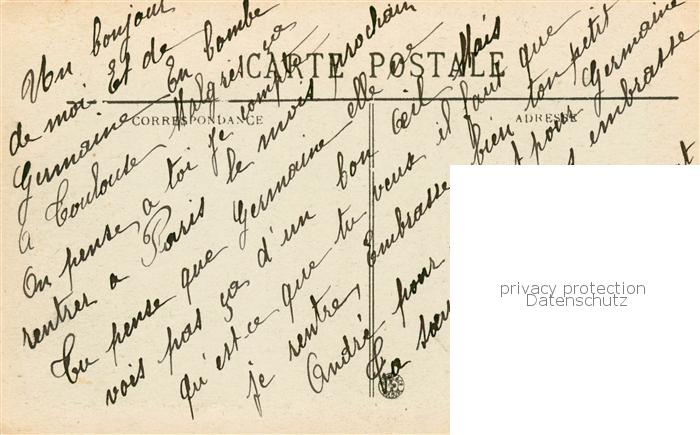 Un bonjour
de moi Et de
Germaine En bombe
a Toulouse Malgrès ça
On pense a toi je compte
rentrer a Paris le mois prochain
Tu pense que Germaine elle ne
vois pas ça d'un bon œil Mais
qu'est-ce que tu veux il faut que
je rentre, Embrasse bien ton petit
André pour pour Germaine
Ta sœur embrasse
CARTE POSTALE
CORRESPONDANCE
ADRESSE
privacy protection
Datenschutz